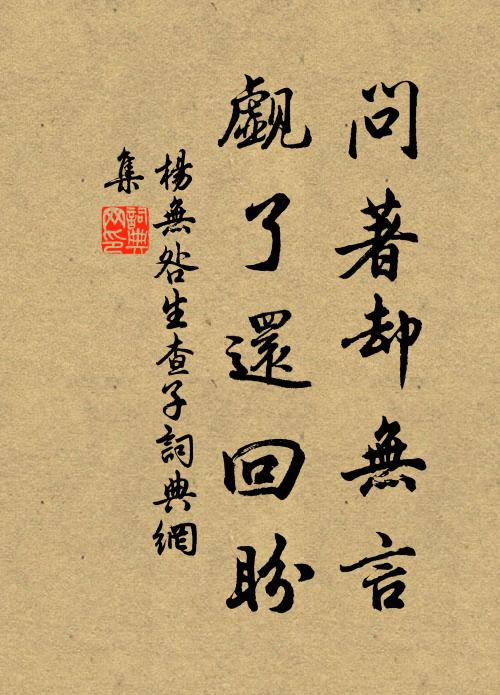 問著却無言
覷了還回盼
楊無咎生查子詞典網
集
詞典
网印